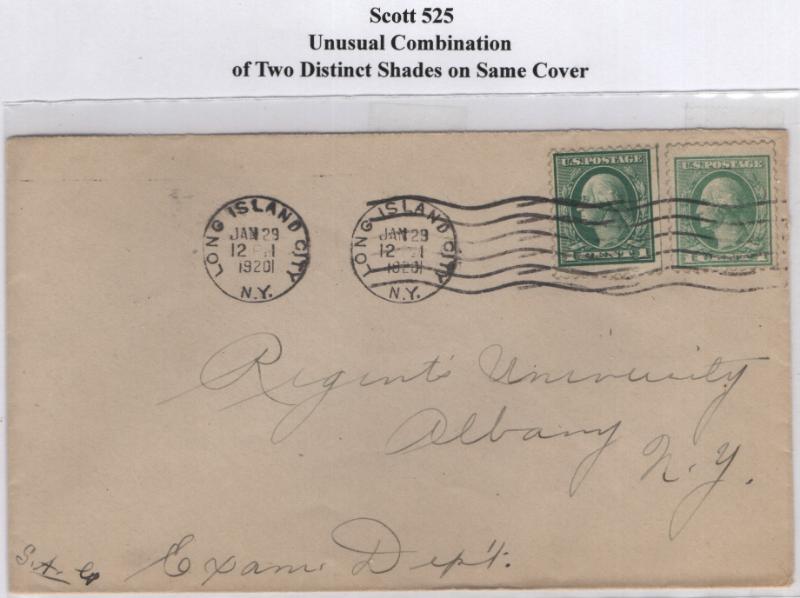 Scott 525
Unusual Combination
of Two Distinct Shades on Same Cover
LONG ISLAND CITY
JAN 29
12
1920
N.Y.
LONG ISLAND CITY
JAN 29
12
1920
N.Y.
U.S. POSTAGE
1 CENT 1
U.S. POSTAGE
CENT
Regents University
Albany
N.Y.
Exam. Dept.
S.A.